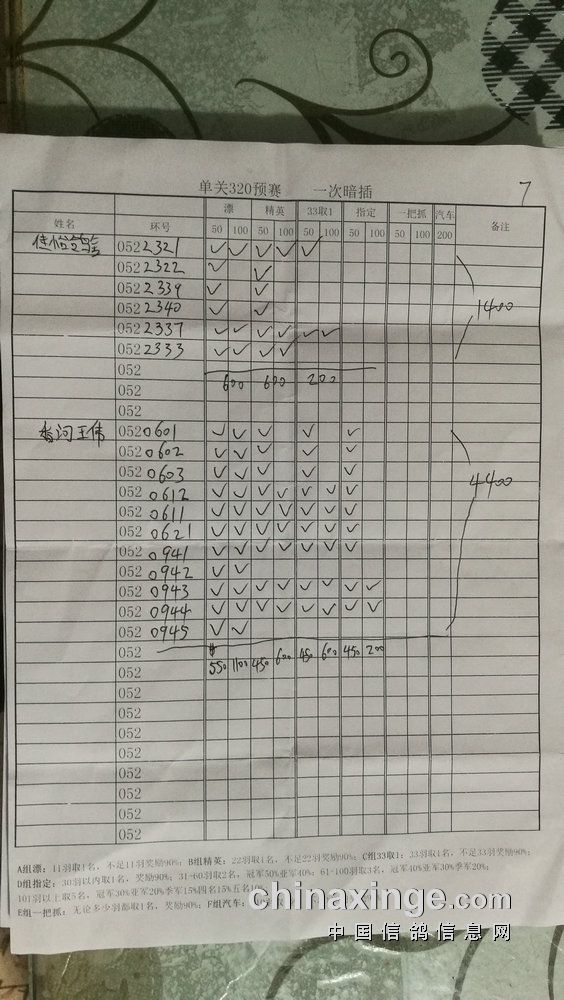 单关320预赛 一次暗插 7
姓名 环号 漂 精英 33取1 指定 一把抓 汽车 备注
50 100 50 100 50 100 50 100 50 100 200
052 2321 ✓ ✓ ✓ ✓ ✓
052 2322 ✓ ✓
052 2339 ✓ ✓
052 2340 ✓ ✓ 1400
052 2337 ✓ ✓ ✓ ✓ ✓ ✓
052 2333 ✓ ✓ ✓ ✓
052
052 600 600 200
052
香河王伟 052 0601 ✓ ✓ ✓ ✓ ✓
052 0602 ✓ ✓ ✓ ✓ ✓
052 0603 ✓ ✓ ✓ ✓ ✓
052 0612 ✓ ✓ ✓ ✓ ✓ ✓ ✓ 4400
052 0611 ✓ ✓ ✓ ✓ ✓ ✓ ✓
052 0621 ✓ ✓ ✓ ✓ ✓ ✓ ✓
052 0941 ✓ ✓ ✓ ✓ ✓ ✓ ✓
052 0942 ✓ ✓
052 0943 ✓ ✓ ✓ ✓ ✓ ✓ ✓ ✓
052 0944 ✓ ✓ ✓ ✓ ✓ ✓ ✓ ✓
052 0945 ✓ ✓
052 550 1100 450 600 450 600 450 200
052
052
052
052
052
052
052
052
052
A组漂：11羽取1名，不足11羽奖励90%；B组精英：22羽取1名，不足22羽奖励90%；C组33取1：33羽取1名，不足33羽奖励90%；
D组指定：30羽以内取1名，奖励90%；31-60羽取2名，冠军50%亚军40%；61-100羽取3名，冠军40%亚军30%季军20%；
101羽以上取5名，冠军30%亚军20%季军15%四名15%五名10%
E组一把抓：无论多少羽都取1名，奖励90%；F组汽车：
chinaxinge.com
中国信鸽信息网